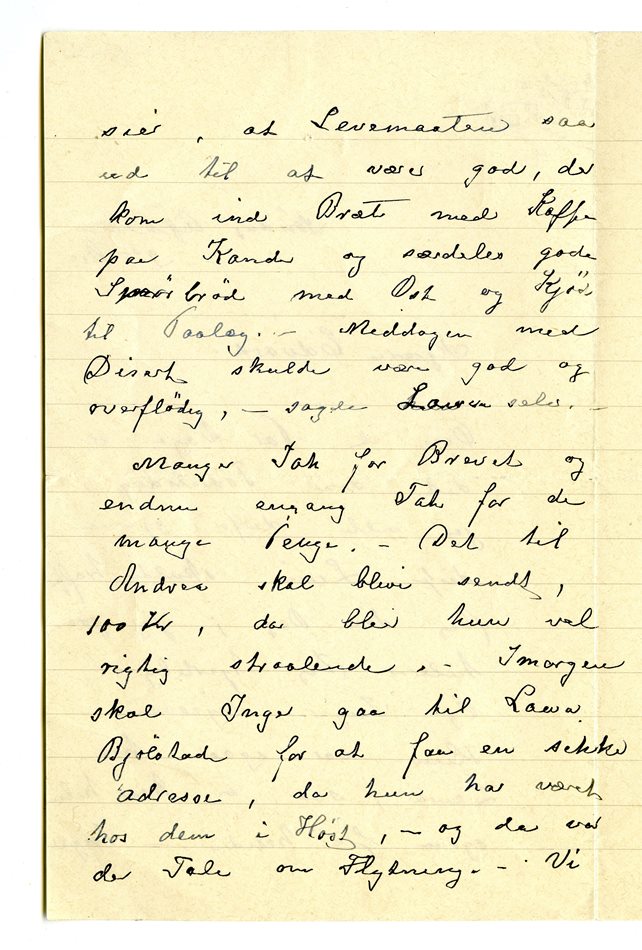 sier, at Levemaaten saa
ud til at være god, der
kom ind Bræt med Kaffe
paa Kande og særdeles gode
Smörbröd med Ost og Kjöt
til Paalæg. – Middagen med
Disert skulde være god og
overflödig, – sagde selv. –
Mange Tak for Brevet og
endnu engang Tak for de
mange Penge. – Det til
Andrea skal blive sendt,
100 Kr, da blir hun vel
rigtig straalende. – Imorgen
skal Inger gaa til Laura
Bjölstad for at faa en sikker
adresse, da hun har været
hos dem i Høst, – og da var
der Tale om Flytning. – Vi